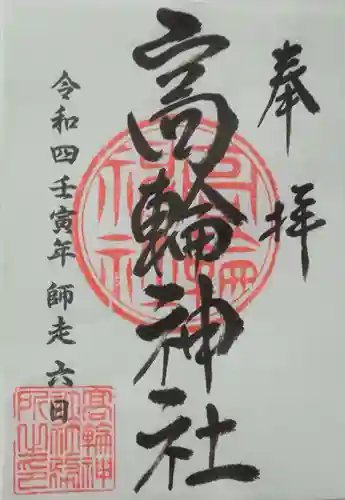 奉拝
高輪神社
令和四壬寅年師走六日
高輪神社